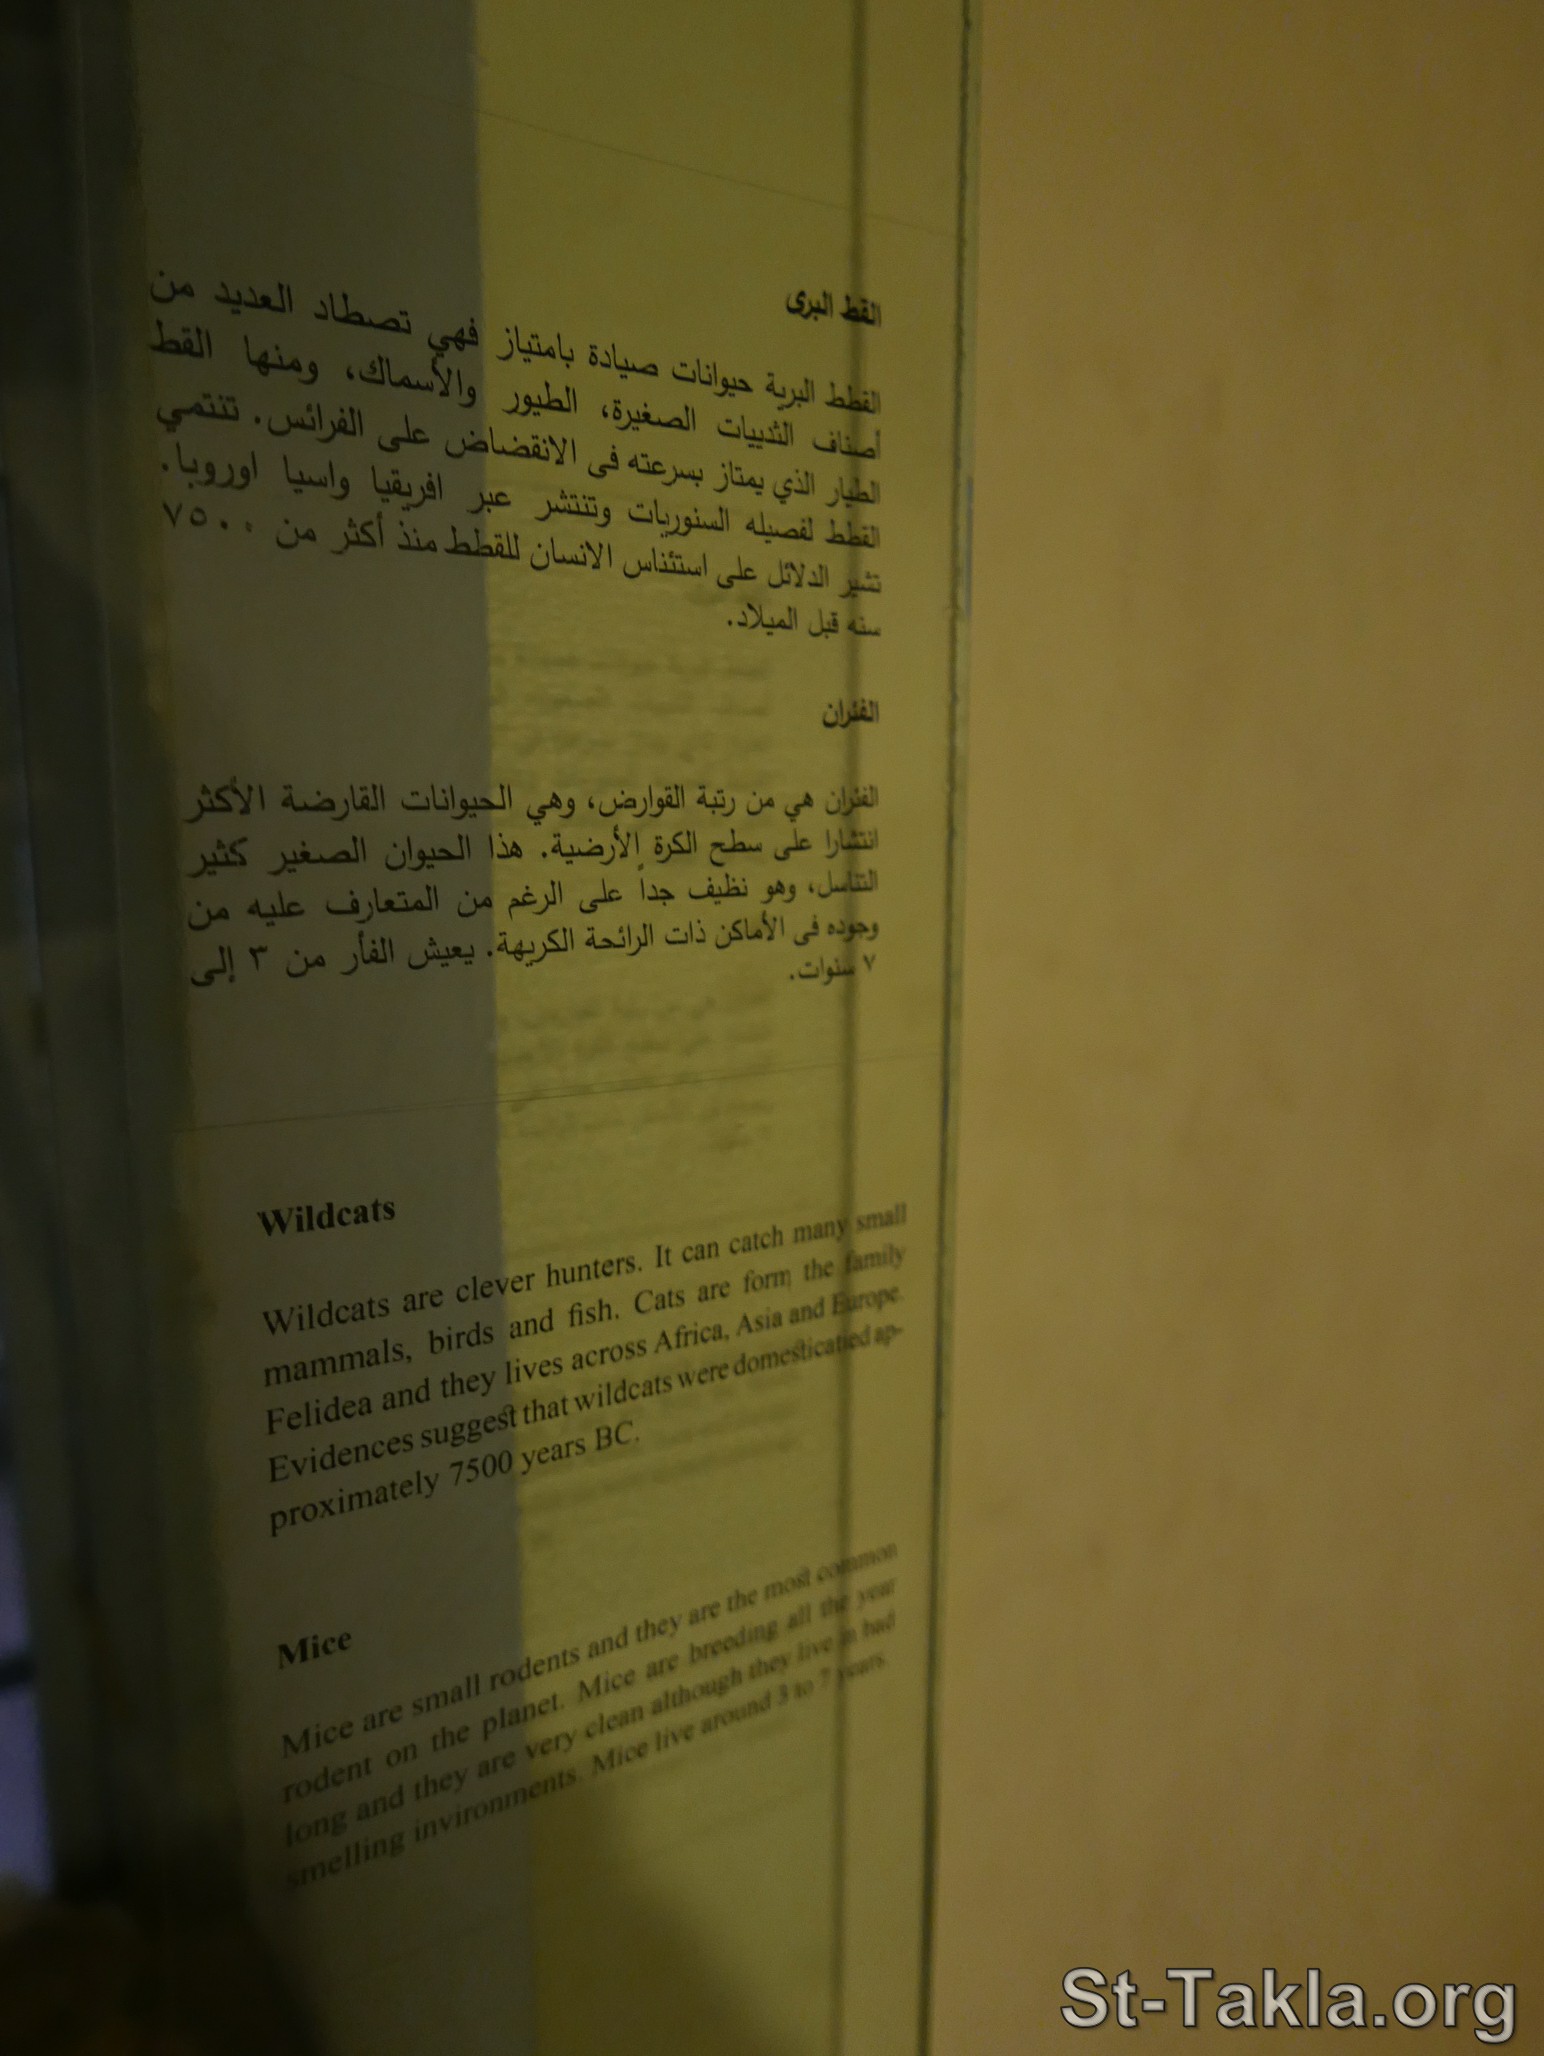 القط البرى
القطط البرية حيوانات صيادة بامتياز فهي تصطاد العديد من
أصناف الثدييات الصغيرة، الطيور والأسماك، ومنها القط
الطيار الذي يمتاز بسرعته فى الانقضاض على الفرائس. تنتمي
القطط لفصيله السنوريات وتنتشر عبر افريقيا واسيا اوروبا.
تشير الدلائل على استئناس الانسان للقطط منذ أكثر من ٧٥٠٠
سنه قبل الميلاد.
الفئران
الفئران هي من رتبة القوارض، وهي الحيوانات القارضة الأكثر
انتشارا على سطح الكرة الأرضية. هذا الحيوان الصغير كثير
التناسل، وهو نظيف جداً على الرغم من المتعارف عليه من
وجوده فى الأماكن ذات الرائحة الكريهة. يعيش الفأر من ٣ إلى
٧ سنوات.
Wildcats
Wildcats are clever hunters. It can catch many small
mammals, birds and fish. Cats are form the family
Felidea and they lives across Africa, Asia and Europe.
Evidences suggest that wildcats were domesticatied ap-
proximately 7500 years BC.
Mice
Mice are small rodents and they are the most common
rodent on the planet. Mice are breeding all the year
long and they are very clean although they live in bad
smelling invironments. Mice live around 3 to 7 years.
St-Takla.org